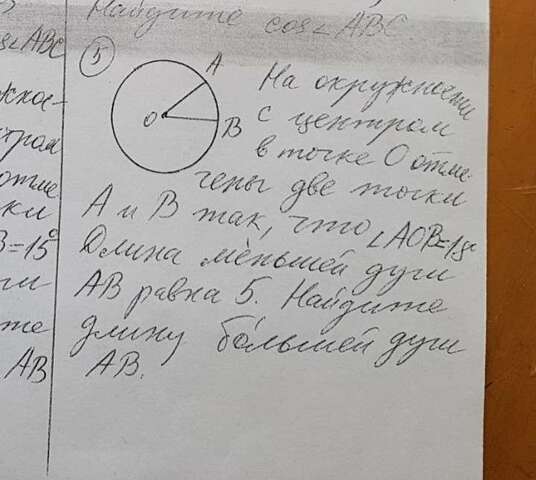 Найдите cos∠ABC.
s∠ABC
5
A
O
B
На окружности
с центром
в точке O отме
чены две точки
A и B так, что ∠AOB=18°
Длина меньшей дуги
AB равна 5. Найдите
длину большей дуги
AB.
жнос-
тром
отме
ки
B=15°
ги
те
AB